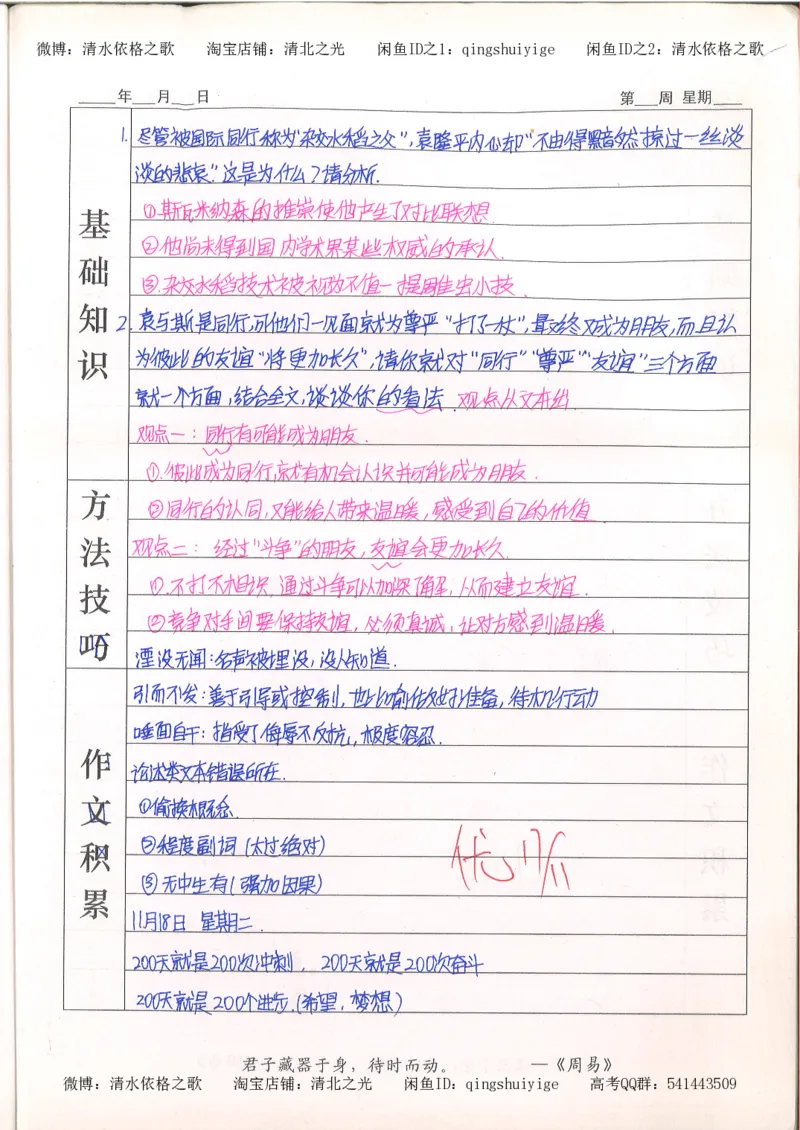 微博：清水依格之歌 淘宝店铺：清北之光 闲鱼ID之1：qingshuiyige 闲鱼ID之2：清水依格之歌
____年___月___日 第___周 星期____
基础知识
1. 尽管被国际同行称为“杂交水稻之父”，袁隆平内心却“不由得黯然掠过一丝淡
淡的悲哀”这是为什么？请分析.
①斯瓦米纳森的推崇使他产生了对比联想.
②他尚未得到国内学术界某些权威的承认.
③.杂交水稻技术被视为不值一提雕虫小技.
2. 袁与斯是同行,可他们一见面就为尊严“打了一仗”,最终又成为朋友,而且认
为彼此的友谊“将更加长久”,请你就对“同行”“尊严”“友谊”三个方面
就一个方面,结合全文,谈谈你的看法. 观点从文本出.
观点一：同行有可能成为朋友.
①.彼此成为同行,就有机会认识并可能成为朋友.
方法技巧
②同行的认同,又能给人带来温暖,感受到自己的价值
观点二：经过“斗争”的朋友,友谊会更加长久.
①.不打不相识,通过斗争可以加深了解,从而建立友谊.
②竞争对手间要保持友谊,必须真诚,让对方感到温暖.
湮没无闻:名声被埋没,没人知道.
作文积累
引而不发:善于引导或控制,也比喻做好准备,待机行动
唾面自干:指受了侮辱不反抗,极度容忍.
论述类文本错误所在.
①偷换概念.
②程度副词(太过绝对)
③无中生有(强加因果)
优 17/11
11月18日 星期二.
200天就是200次冲刺, 200天就是200次奋斗
200天就是200个进步.(希望,梦想)
君子藏器于身，待时而动。 —《周易》
微博：清水依格之歌 淘宝店铺：清北之光 闲鱼ID：qingshuiyige 高考QQ群：541443509